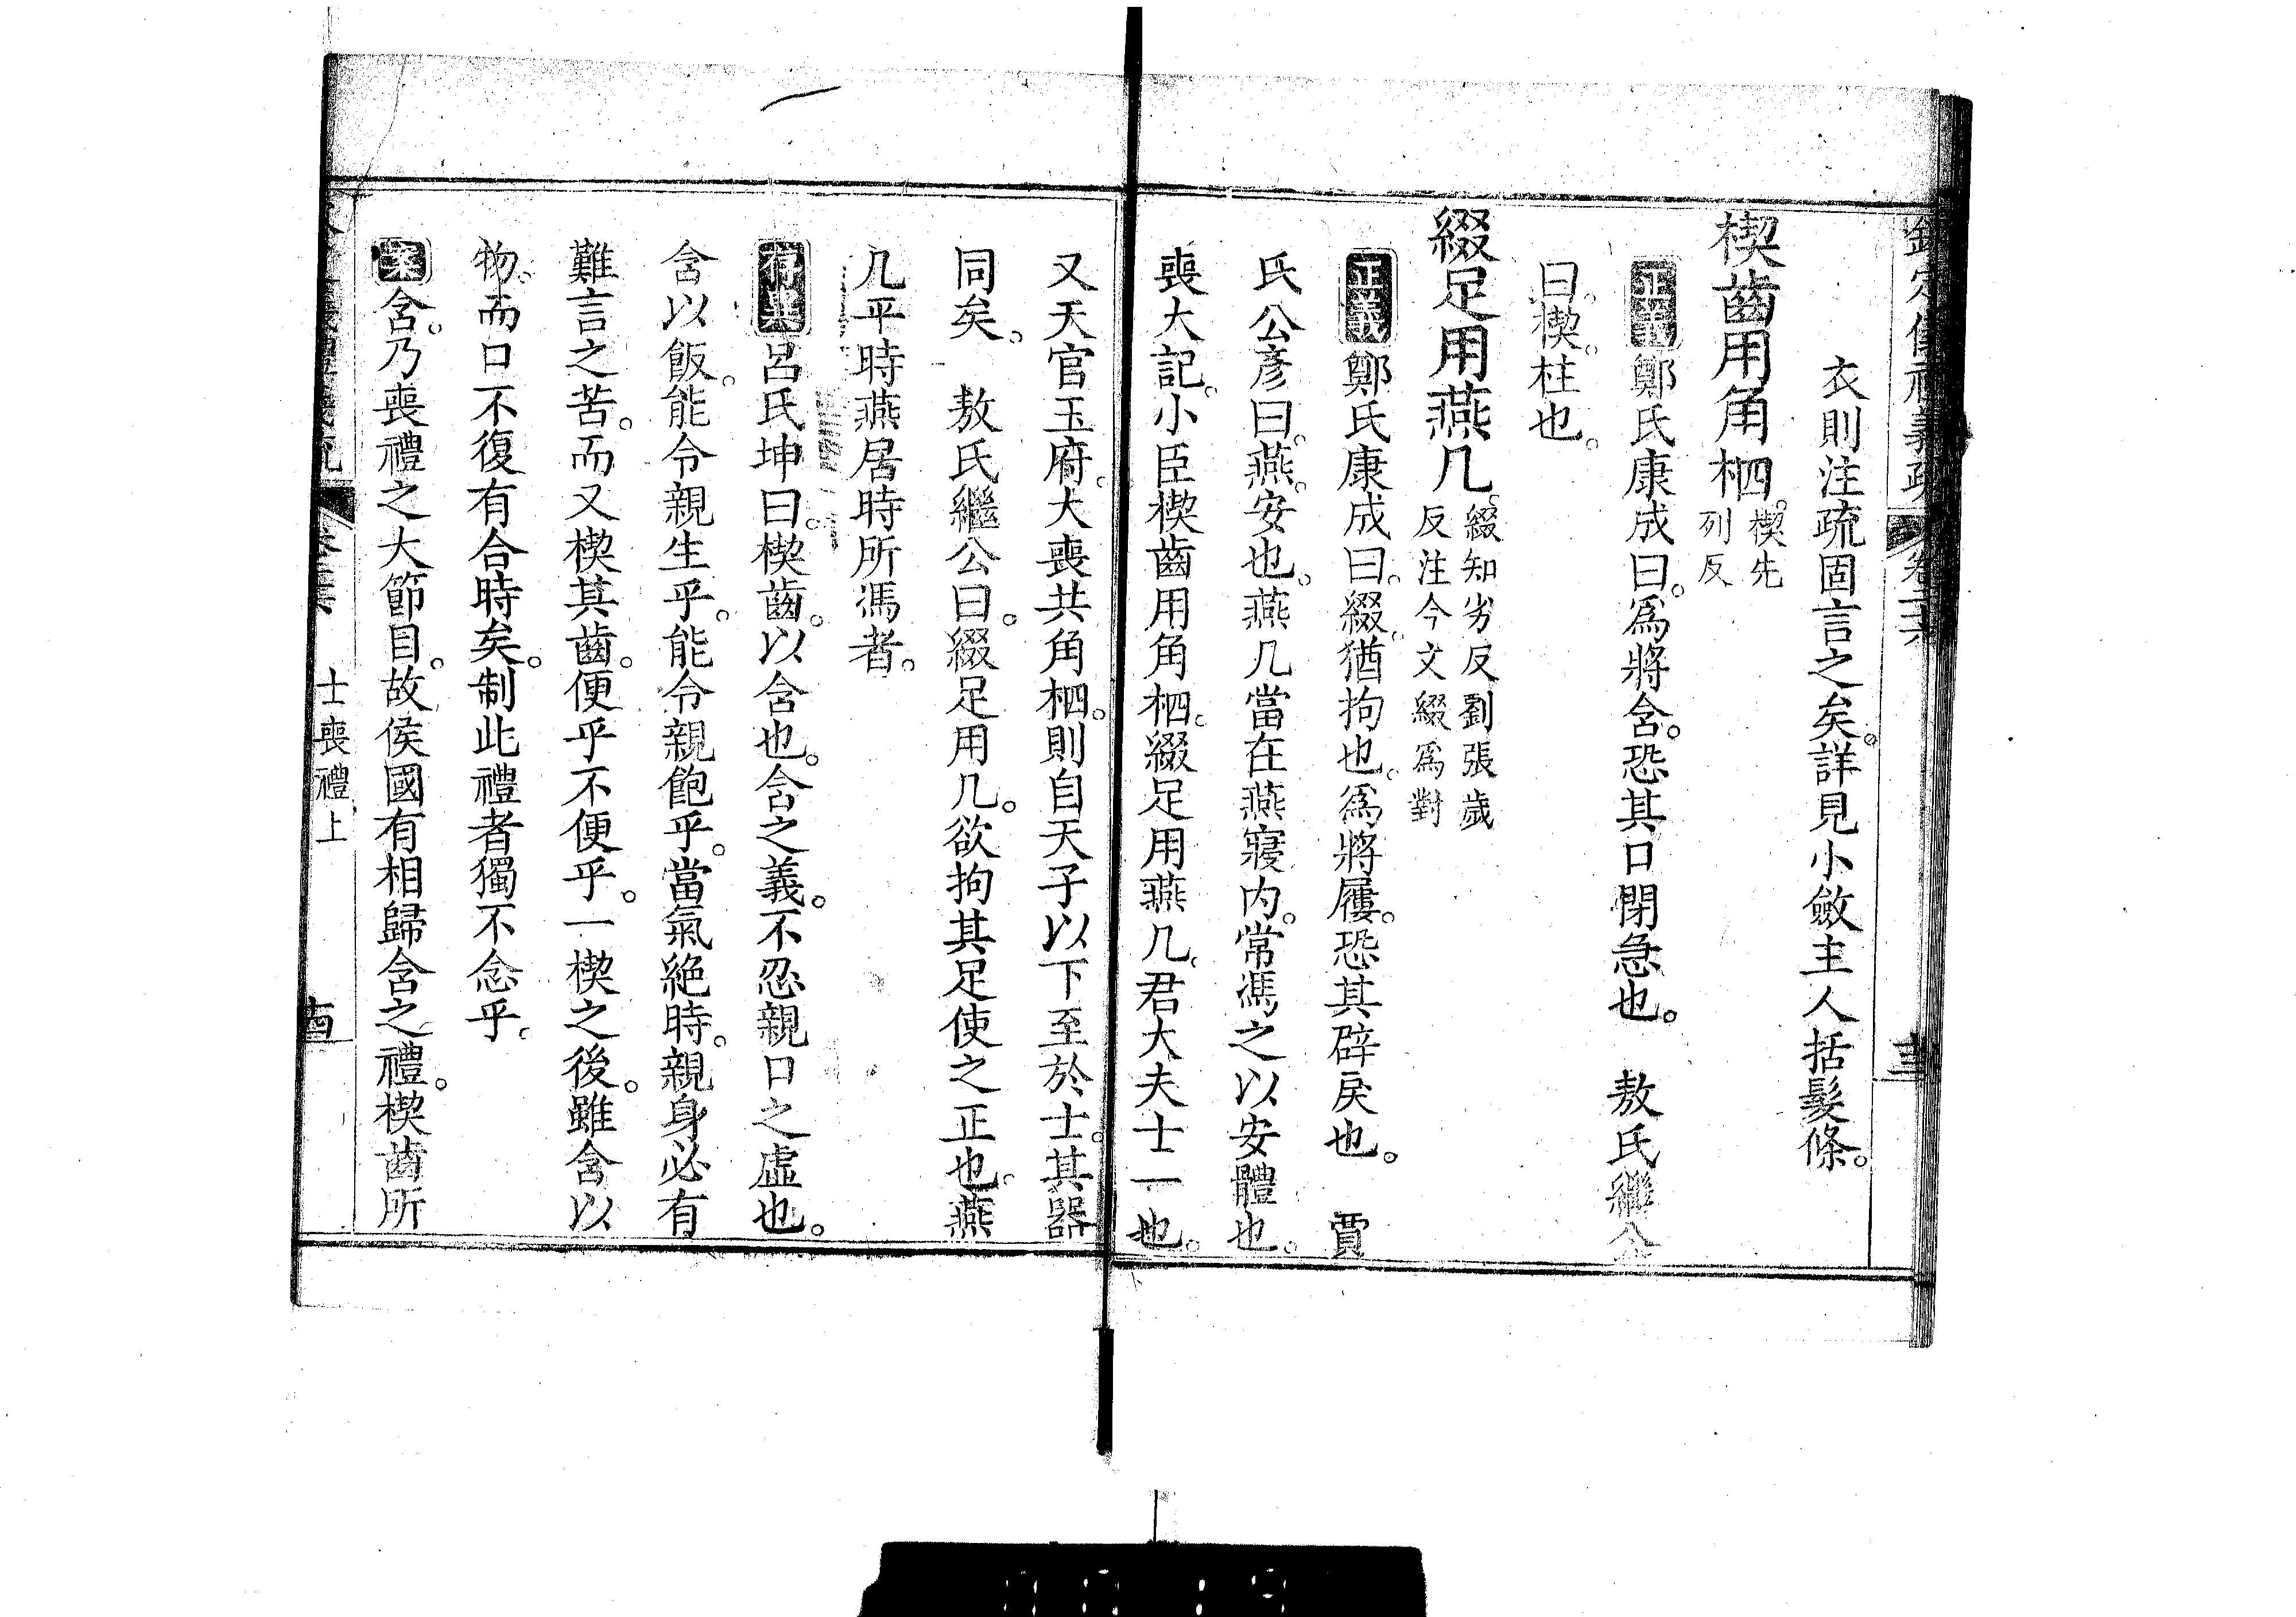 欽定儀禮義疏 卷二六
衣則注疏固言之矣。詳見小斂主人括髮條。
楔齒用角柶。楔先列反
正義鄭氏康成曰。爲將含。恐其口閉急也。 敖氏繼公
曰。楔。柱也。
綴足用燕几。綴知劣反劉張歲反注今文綴爲對
正義鄭氏康成曰。綴。猶拘也。爲將屨。恐其辟戾也。 賈
氏公彥曰。燕。安也。燕几當在燕寢内。常馮之以安體也。
喪大記。小臣楔齒用角柶。綴足用燕几。君大夫士一也。
又天官玉府。大喪共角柶。則自天子以下至於士。其器
同矣。 敖氏繼公曰。綴足用几。欲拘其足使之正也。燕
几平時燕居時所馮者。
存異呂氏坤曰。楔齒。以含也。含之義。不忍親口之虛也。
含以飯。能令親生乎。能令親飽乎。當氣絶時。親身必有
難言之苦。而又楔其齒。便乎不便乎。一楔之後。雖含以
物。而口不復有合時矣。制此禮者獨不念乎。
案含。乃喪禮之大節目。故侯國有相歸含之禮。楔齒所
士喪禮上